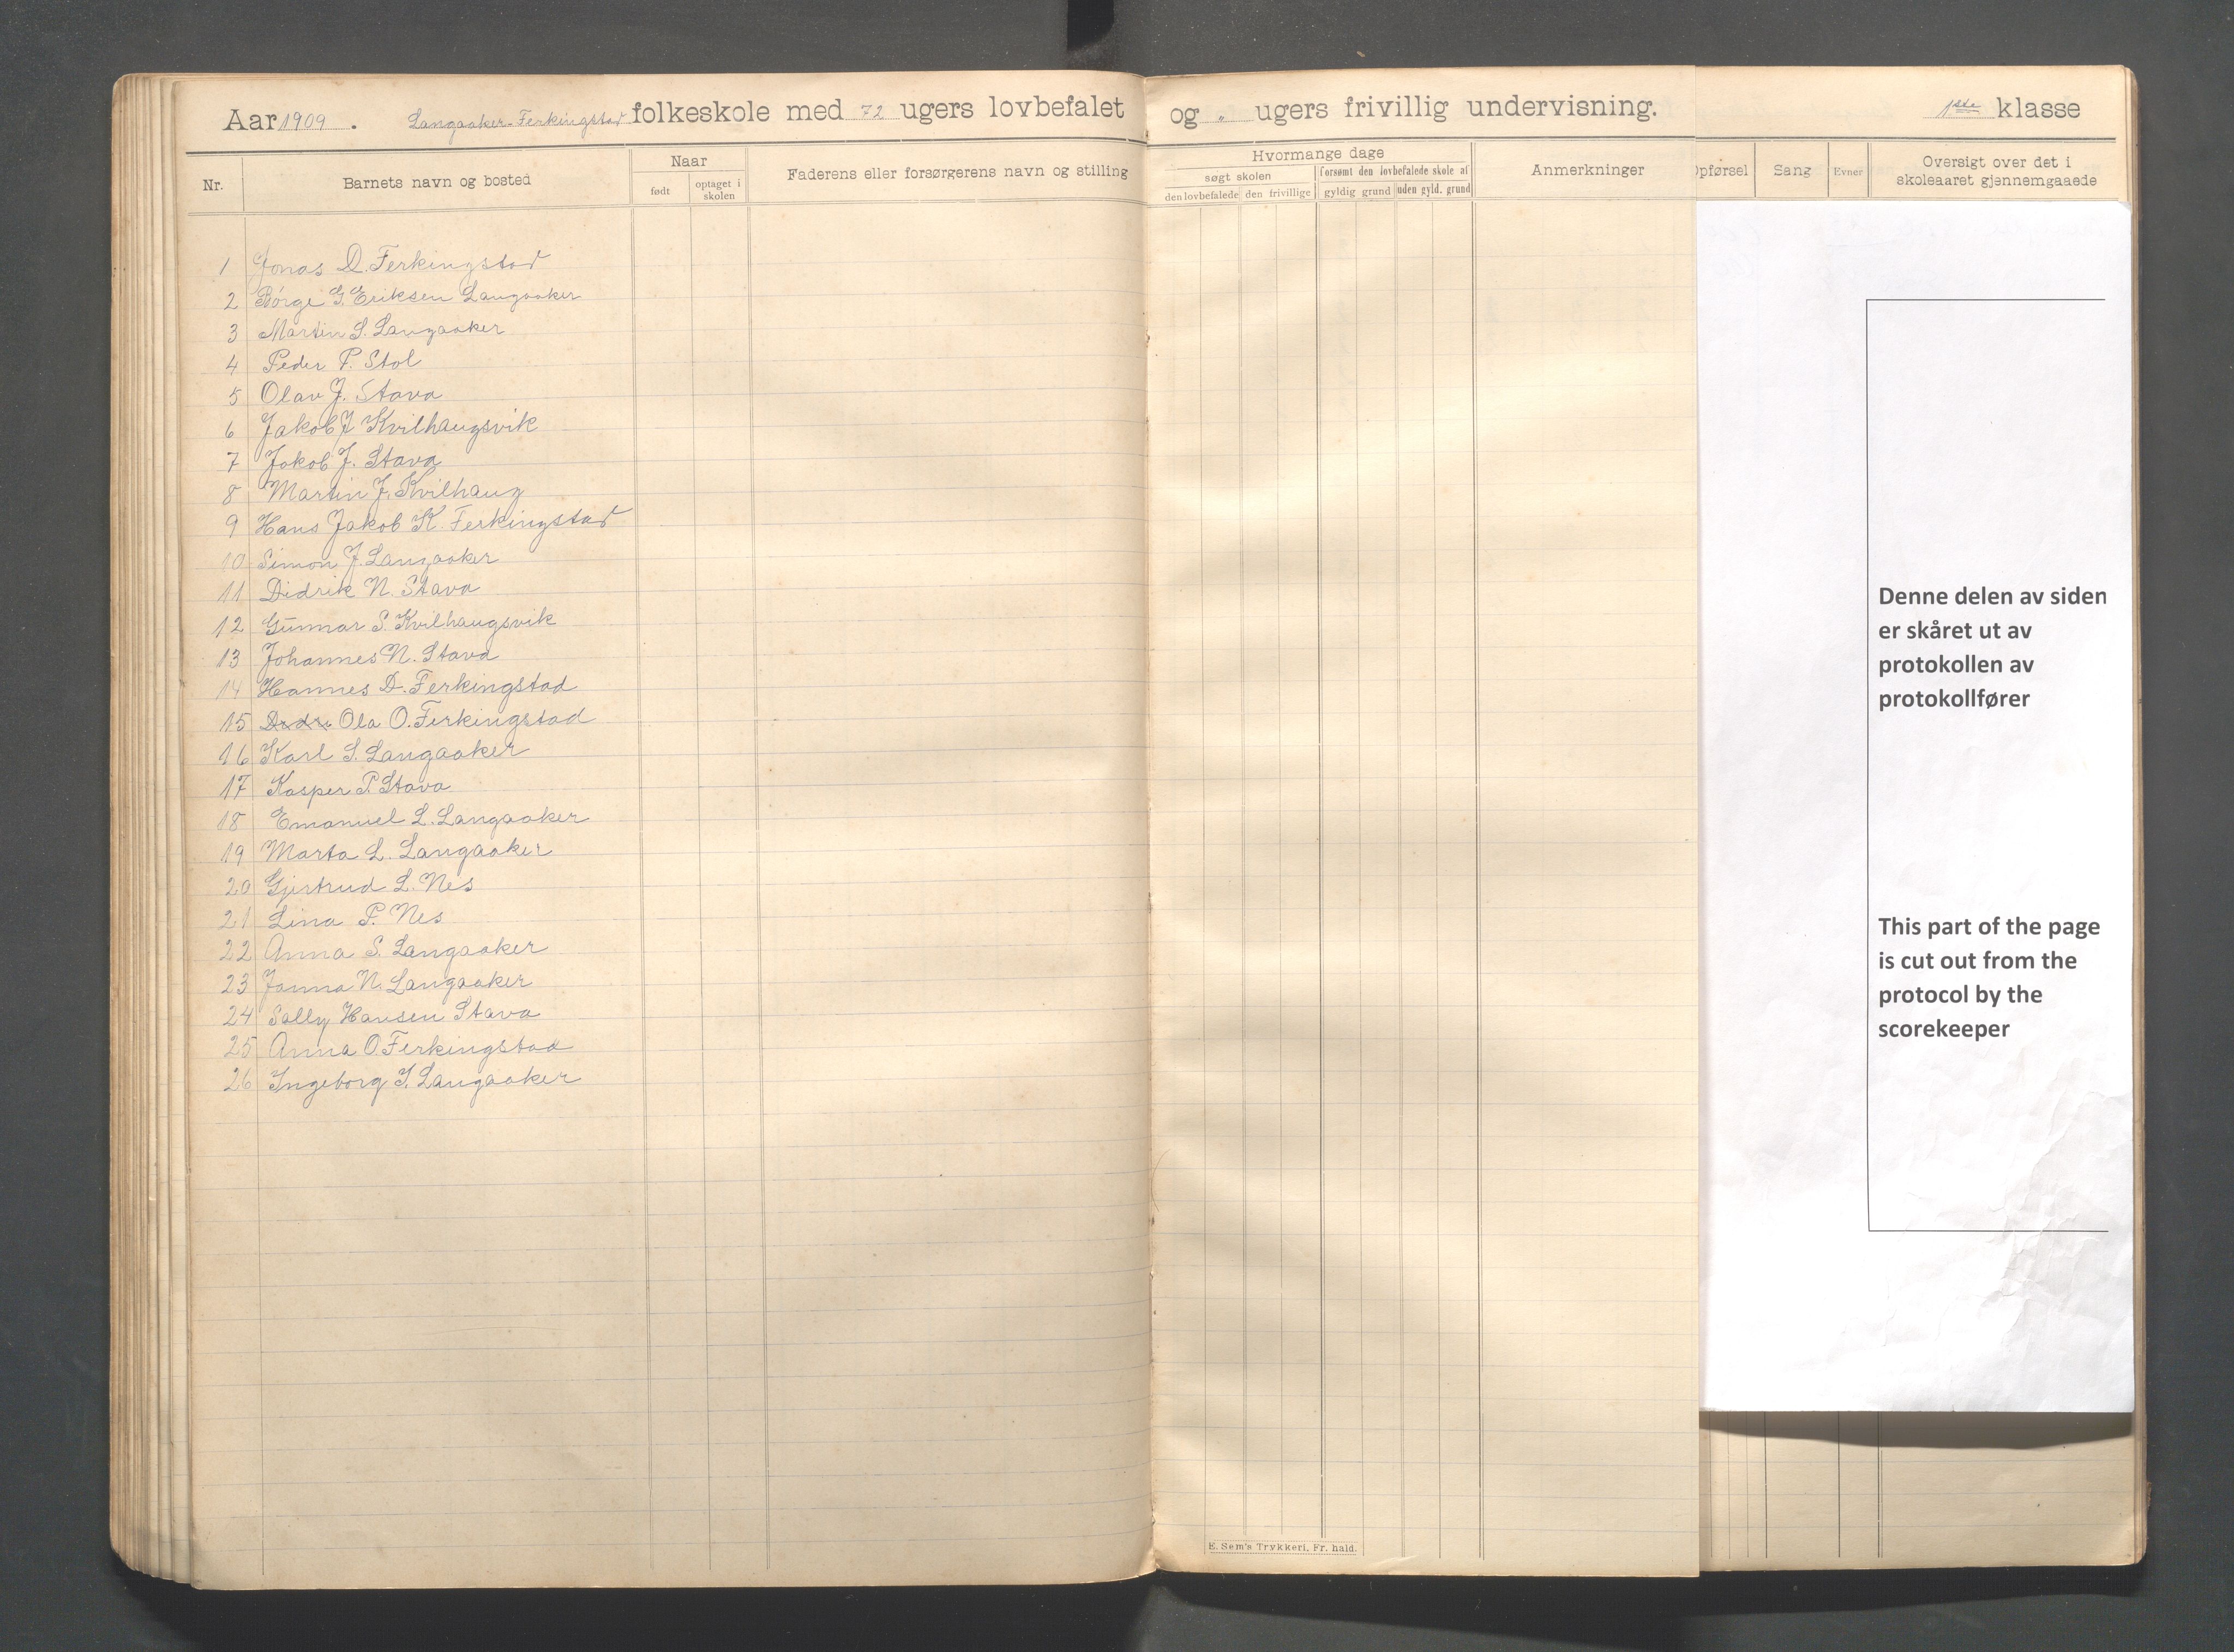 Aar 1909. Langaaker-Ferkingstad folkeskole med 72 ugers lovbefalet og " ugers frivillig undervisning. 1ste klasse
Nr.
Barnets navn og bosted
Naar
født
optaget i skolen
Faderens eller forsørgerens navn og stilling
Hvormange dage
søgt skolen
den lovbefalede
den frivillige
forsømt den lovbefalede skole af
gyldig grund
uden gyld. grund
Anmerkninger
Opførsel
Sang
Evner
Oversigt over det i
skoleaaret gjennemgaaede
1 Jonas D. Ferkingstad
2 Børge G. Eriksen Langaaker
3 Martin S. Langaaker
4 Peder P. Stol
5 Olav J. Stava
6 Jakob J Kvilhaugsvik
7 Jakob J. Stava
8 Martin J. Kvilhaug
9 Hans Jakob K. Ferkingstad
10 Simon J. Langaaker
11 Didrik N. Stava
12 Gunnar S. Kvilhaugsvik
13 Johannes N. Stava
14 Hannes D. Ferkingstad
15 Ola O. Ferkingstad
16 Karl S. Langaaker
17 Kasper P. Stava
18 Emanuel L. Langaaker
19 Marta L. Langaaker
20 Gjertrud L. Nes
21 Lina P. Nes
22 Anna S. Langaaker
23 Janna N. Langaaker
24 Sally Hansen Stava
25 Anna O Ferkingstad
26 Ingeborg I. Langaaker
E. Sem's Trykkeri, Fr. hald.
Denne delen av siden
er skåret ut av
protokollen av
protokollfører
This part of the page
is cut out from the
protocol by the
scorekeeper